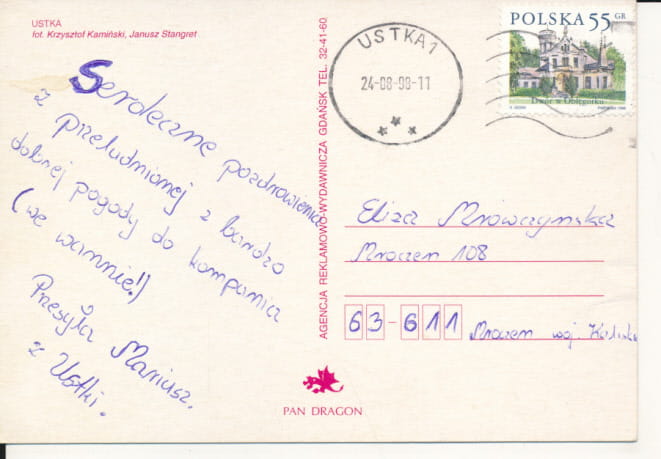 USTKA
fot. Krzysztof Kamiński, Janusz Stangret
Serdeczne pozdrowienia
z przeludnionej z bardzo
dobrej pogody do kompania
(we wannie!)
Przesyła Mariusz.
z Ustki.
AGENCJA REKLAMOWO-WYDAWNICZA GDAŃSK TEL. 32-41-60
USTKA 1
24-08-98-11
POLSKA 55 GR
Dwór w Oblęgorku
Eliza Mrowczynska
Mroczen 108
63-611 Mroczen woj. Kaliskie
PAN DRAGON